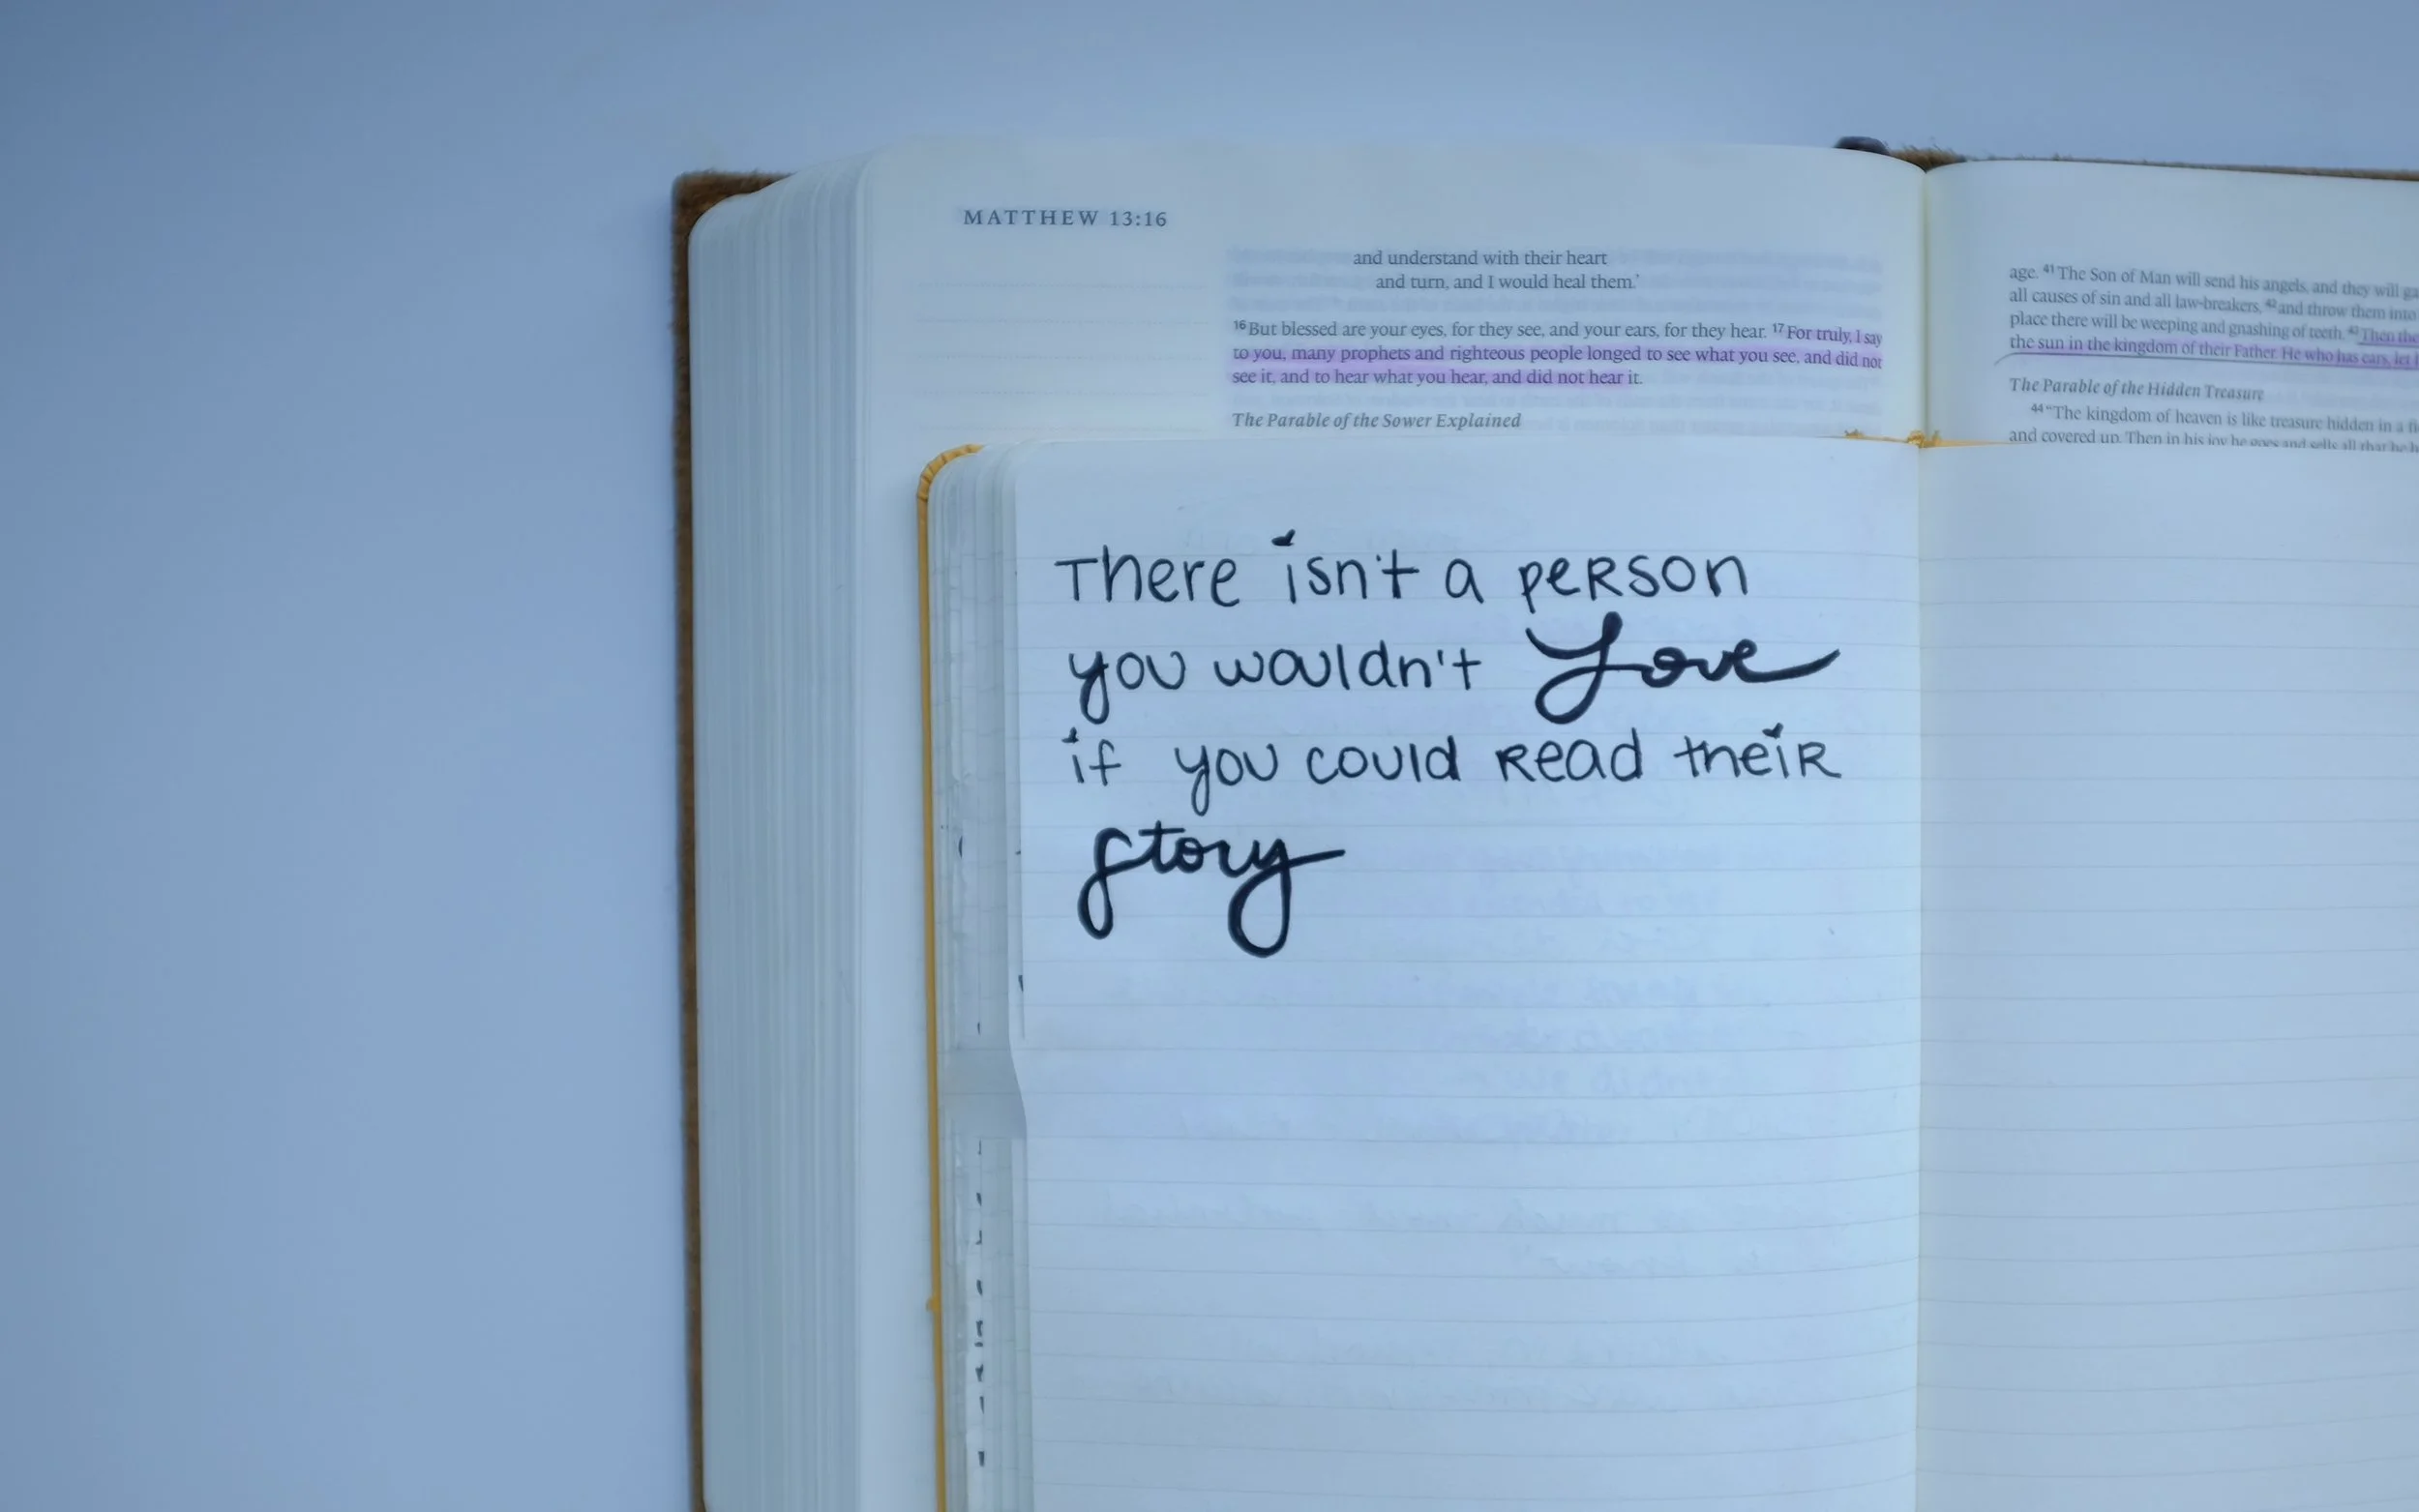 MATTHEW 13:16
and understand with their heart
and turn, and I would heal them.’
16 But blessed are your eyes, for they see, and your ears, for they hear. 17 For truly, I say
to you, many prophets and righteous people longed to see what you see, and did not
see it, and to hear what you hear, and did not hear it.
The Parable of the Sower Explained
age. 41 The Son of Man will send his angels, and they will
all causes of sin and all law-breakers, 42 and throw them into
place there will be weeping and gnashing of teeth. 43 Then the
the sun in the kingdom of their Father. He who has ears, let
The Parable of the Hidden Treasure
44 “The kingdom of heaven is like treasure hidden in a
and covered up. Then in his joy he goes and sells all that he
There isn't a person
you wouldn't Love
if you could Read their
story